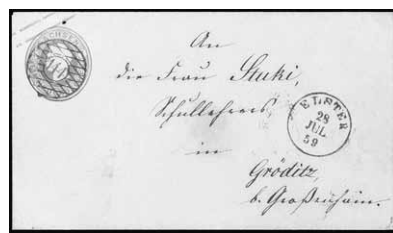 SACHSEN
An
die Frau Stuki,
Schullehrers,
in
Gröditz,
b. Großenhain.
ELSTER
28
JUL
59